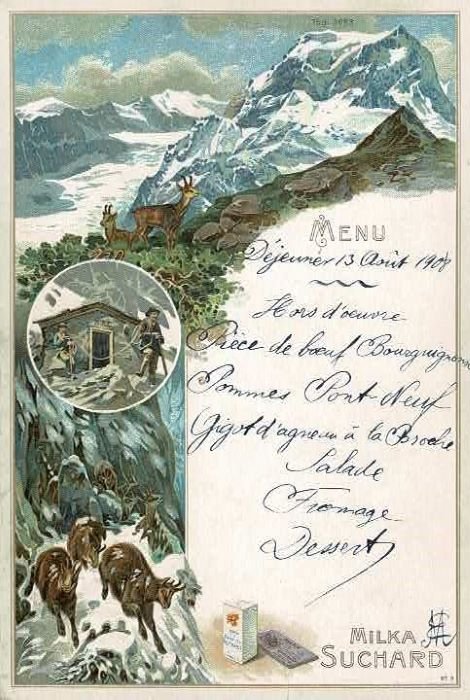 MENU
Déjeuner 13 Août 1908
Hors d'oeuvre
Pièce de boeuf Bourguignonne
Pommes Pont Neuf
Gigot d'agneau à la Broche
Salade
Fromage
Dessert
MILKA
SUCHARD